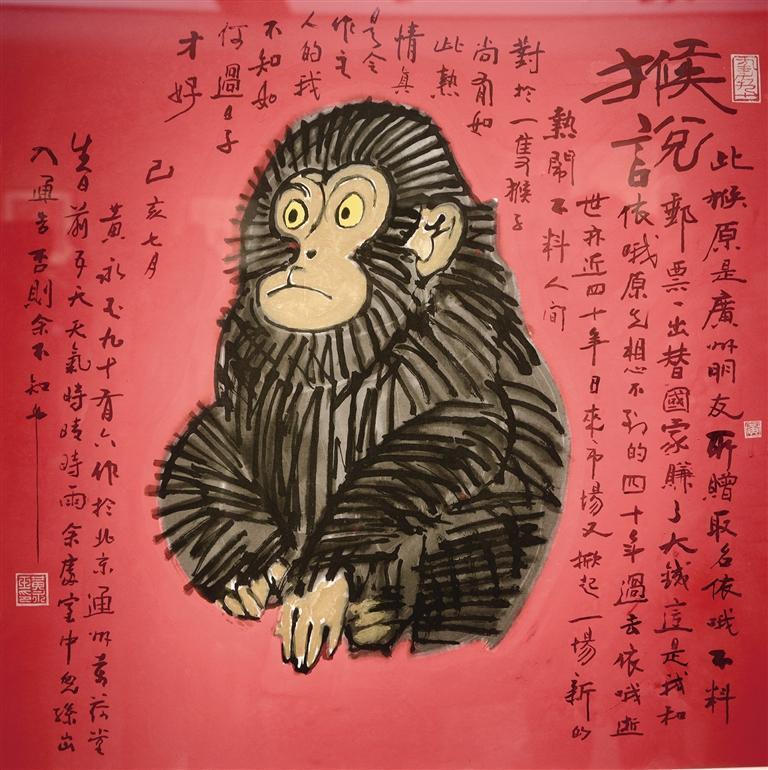 猴說
此猴原是廣州朋友所贈取名依哦不料
郵票一出替國家賺了大錢這是我和
依哦原先想不到的四十年過去依哦逝
世亦近四十年日來市場又掀起一場新的
熱鬧不料人間
對於一隻猴子
尚有如
此熱
情真
是令
作主
人的我
不知如
何過日子
才好
己亥七月
黃永玉九十有六作於北京通州萬荷堂
生日前天天氣時晴時雨余處室中忽出
入通告否則余不知也
黃
黃永玉印